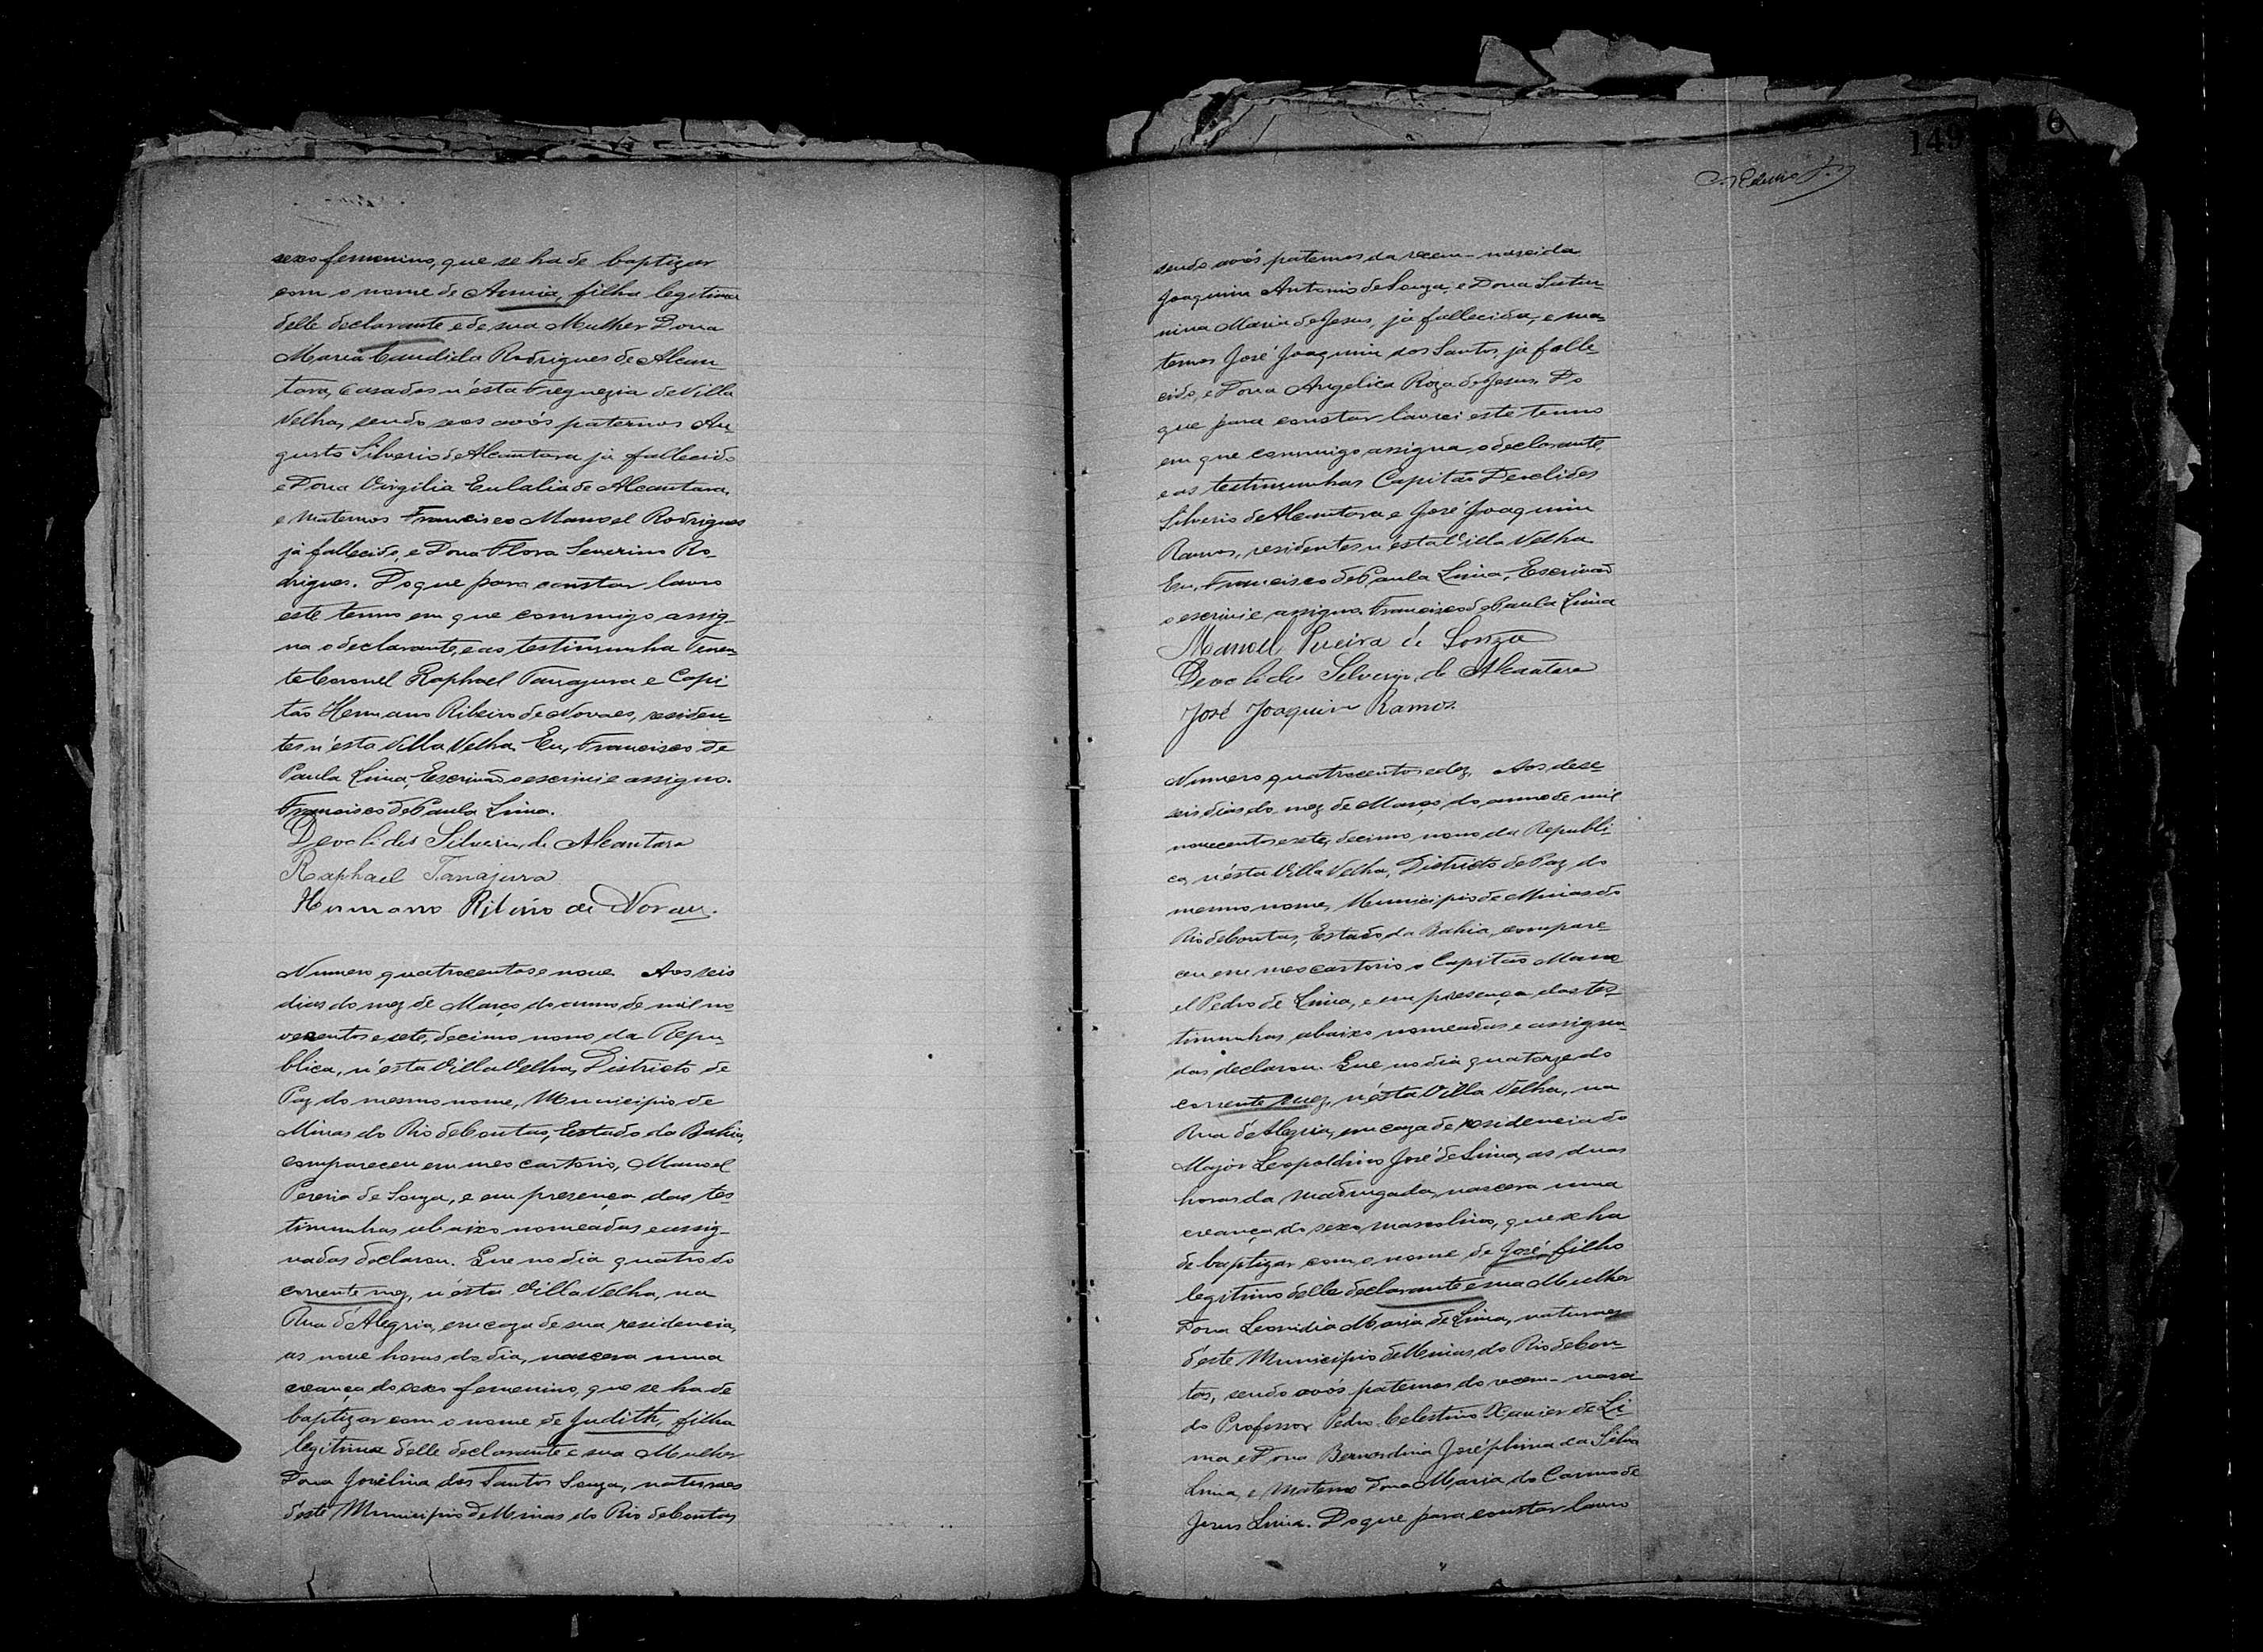 sexo femenino, que se ha de baptizar
com o nome de filha legitima
delle declarante e de sua Mulher Dona
Maria Candida Rodrigues de Alcan-
tara, casados n'ésta Freguezia de Villa
Velha, sendo seos avós paternos Au-
gusto Silverio de Alcantara já fallecido
e Dona Virgilia Eulalia de Alcantara,
e maternos Francisco Manoel Rodrigues
já fallecido, e Dona Flora Severino Ro-
drigues. Do que para constar lavro
este termo em que commigo assig-
na o declarante, e as testimunha Tenen-
te Coronel Raphael Tanajura e Capi-
tão Hermano Ribeiro de Novaes, residen-
tes n'ésta Villa Velha. Eu, Francisco de
Paula Lima, Escrivão o escrivi e assigno.
Francisco de Paula Lima.
Deoclides Silverio de Alcantara
Raphael Tanajura
Hermano Ribeiro de Novaes.
Numero quatrocentos e nove. Aos seis
dias do mez de Março do anno de mil no-
vecentos e sete, decimo nono da Repu-
blica, n'ésta Villa Velha, Districto de
Paz do mesmo nome, Municipio de
Minas do Rio de Contas, Estado da Bahia,
compareceu em meo cartorio, Manoel
Pereira de Souza, e em presença das tes-
timunhas abaixo nomeadas e assig-
nadas declarou. Que no dia quatro do
corrente mez, n'ésta Villa Velha, na
Rua d'Alegria, em caza de sua residencia,
as nove horas do dia, nascera uma
creança do sexo femenino, que se ha de
baptizar com o nome de Judith, filha
legitima d'elle declarante e sua Mulher
Dona Jovelina dos Santos Souza, naturaes
d'este Municipio de Minas do Rio de Contas
149
6
sendo avós paternos da recem-nascida
Joaquim Antonio de Souza, e Dona Satur-
nina Maria de Jesus, já fallecida, e ma-
ternos José Joaquim dos Santos, já falle-
cido, e Dona Angelica Roza de Jesus. Do
que para constar lavrei este termo
em que commigo assigna, o declarante,
e as testimunhas Capitão Deoclides
Silverio de Alcantara e José Joaquim
Ramos, residentes n'esta Villa Velha
Eu, Francisco de Paula Lima, Escrivão
o escrivi e assigno. Francisco de Paula Lima
Manoel Pereira de Souza
Deoclides Silverio de Alcantara
José Joaquim Ramos.
Numero quatrocentos e dez. Aos deze-
seis dias do mez de Março do anno de mil
novecentos e sete, decimo nono da Republi-
ca, n'ésta Villa Velha, Districto de Paz do
mesmo nome, Municipio de Minas do
Rio de Contas, Estado da Bahia, compare-
ceu em meo cartorio o Capitão Mano-
el Pedro de Lima, e em presença das tes-
timunhas abaixo nomeadas e assigna-
das declarou. Que no dia quatorze do
corrente mez, n'ésta Villa Velha, na
Rua d'Alegria, em caza de residencia do
Major Leopoldino José de Lima, as duas
horas da madrugada, nascera uma
creança do sexo masculino, que se ha
de baptizar com o nome de José, filho
legitimo delle declarante e sua Mulher
Dona Leonidia Maria de Lima, naturaes
d'este Municipio de Minas do Rio de Con-
tas, sendo avós paternos do recem-nasci-
do Professor Pedro Celestino Xavier de Li-
ma e Dona Bernardina Joséphina da Silva
Lima, e Materno Dona Maria do Carmo de
Jesus Lima. Do que para constar lavro